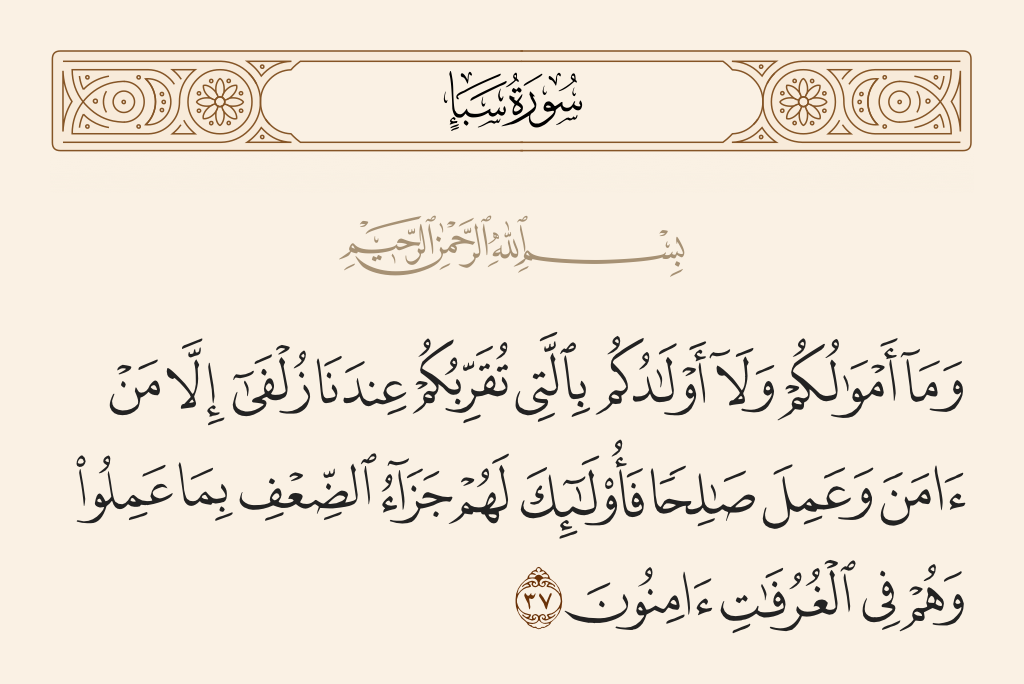 سُورَةُ سَبَإٍ
بِسْمِ ٱللَّهِ ٱلرَّحْمَٰنِ ٱلرَّحِيمِ
وَمَآ أَمْوَٰلُكُمْ وَلَآ أَوْلَٰدُكُم بِٱلَّتِى تُقَرِّبُكُمْ عِندَنَا زُلْفَىٰٓ إِلَّا مَنْ
ءَامَنَ وَعَمِلَ صَٰلِحًا فَأُو۟لَٰٓئِكَ لَهُمْ جَزَآءُ ٱلضِّعْفِ بِمَا عَمِلُوا۟
وَهُمْ فِى ٱلْغُرُفَٰتِ ءَامِنُونَ ٣٧